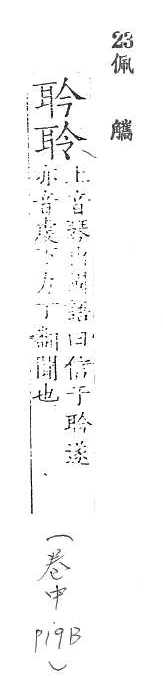 23佩觿
耹聆
上音琴出國語曰信于耹遂
亦音虔下力丁翻聞也
(卷中 P19B)